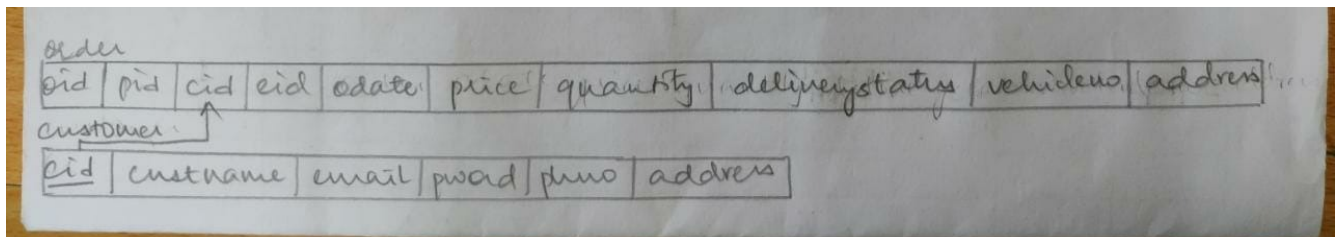 order
oid pid cid eid odate price quantity deliverystatus vehicleno address
customer
cid custname email pword phno address